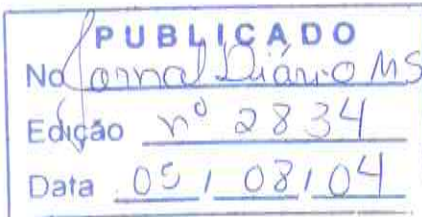 PUBLICADO
No Jornal Diário MS
Edição nº 2834
Data 05 / 08 / 04